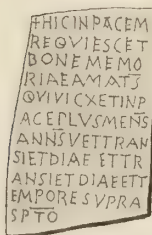 †HICINPACEM
REQVIESCET
BONEMEMO
RIAEAMATS
QVIVICXETINP
ACEPLVSMENS
ANNSVETTRAN
SIETDIAE ETTR
ANSIETDIAEETT
EMPORESVPRA
SPTO